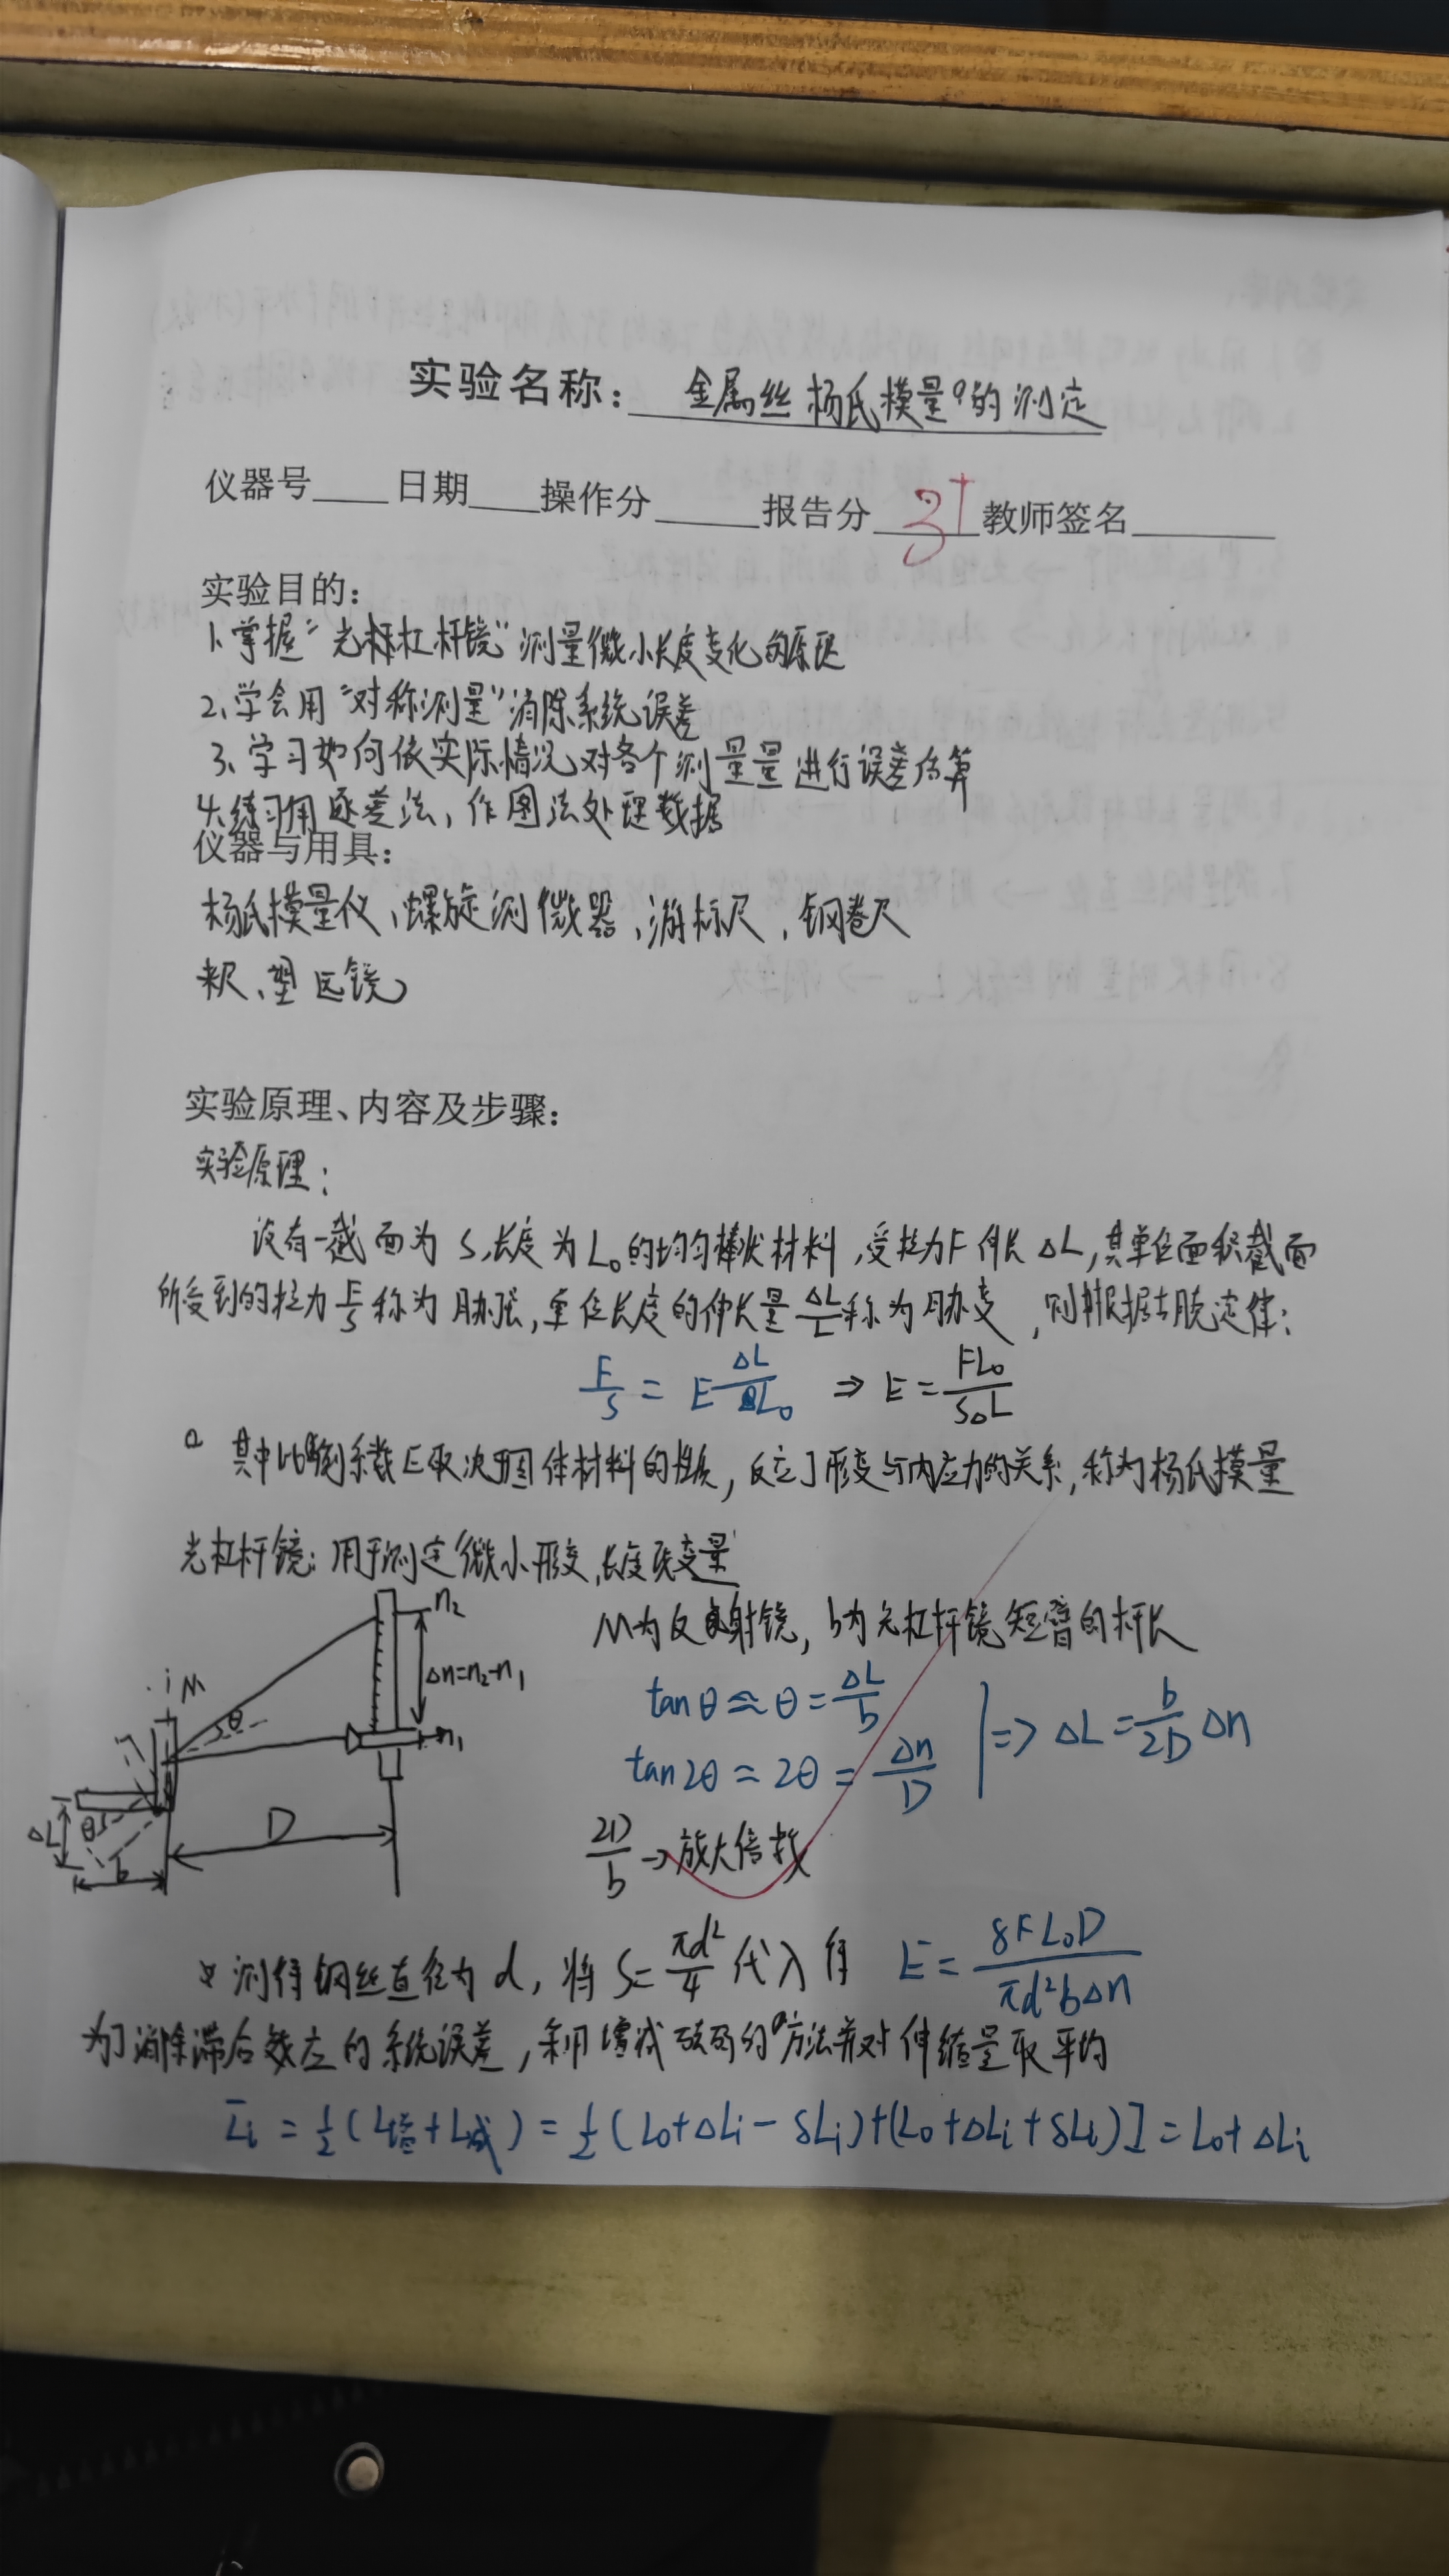 实验名称: 金属丝杨氏模量的测定
仪器号 日期 操作分 报告分 3+ 教师签名
实验目的:
1、掌握"光杠杆镜"测量微小长度变化的原理
2、学会用"对称测量"消除系统误差
3、学习如何依实际情况对各个测量量进行误差估算
4、练习用逐差法,作图法处理数据
仪器与用具:
杨氏模量仪、螺旋测微器、游标尺、钢卷尺
米尺、望远镜
实验原理、内容及步骤:
实验原理:
设有一截面为S,长度为L₀的均匀棒状材料,受拉力F伸长ΔL,其单位面积截面
所受到的拉力F/S称为胁强,单位长度的伸长量ΔL/L称为胁变,则根据胡克定律:
F/S = E ΔL/L₀ ⇒ E = FL₀/SΔL
其中比例系数E取决于固体材料的性质,反应了形变与内应力的关系,称为杨氏模量
光杠杆镜:用于测定微小形变,长度改变量
M为反射镜,b为光杠杆镜短臂的杆长
n₂
Δn=n₂-n₁
n₁
M
θ
D
ΔL
θ
b
tanθ ≈ θ = ΔL/b
tan2θ ≈ 2θ = Δn/D
⇒ ΔL = b/2D Δn
2D/b → 放大倍数
测得钢丝直径为d,将S=πd²/4代入得 E = 8FL₀D/πd²bΔn
为了消除滞后效应的系统误差,利用增减砝码的方法并对伸缩量取平均
L̄i = ½(L增+L减) = ½(L₀+ΔLi-δLi)+(L₀+ΔLi+δLi)] = L₀+ΔLi